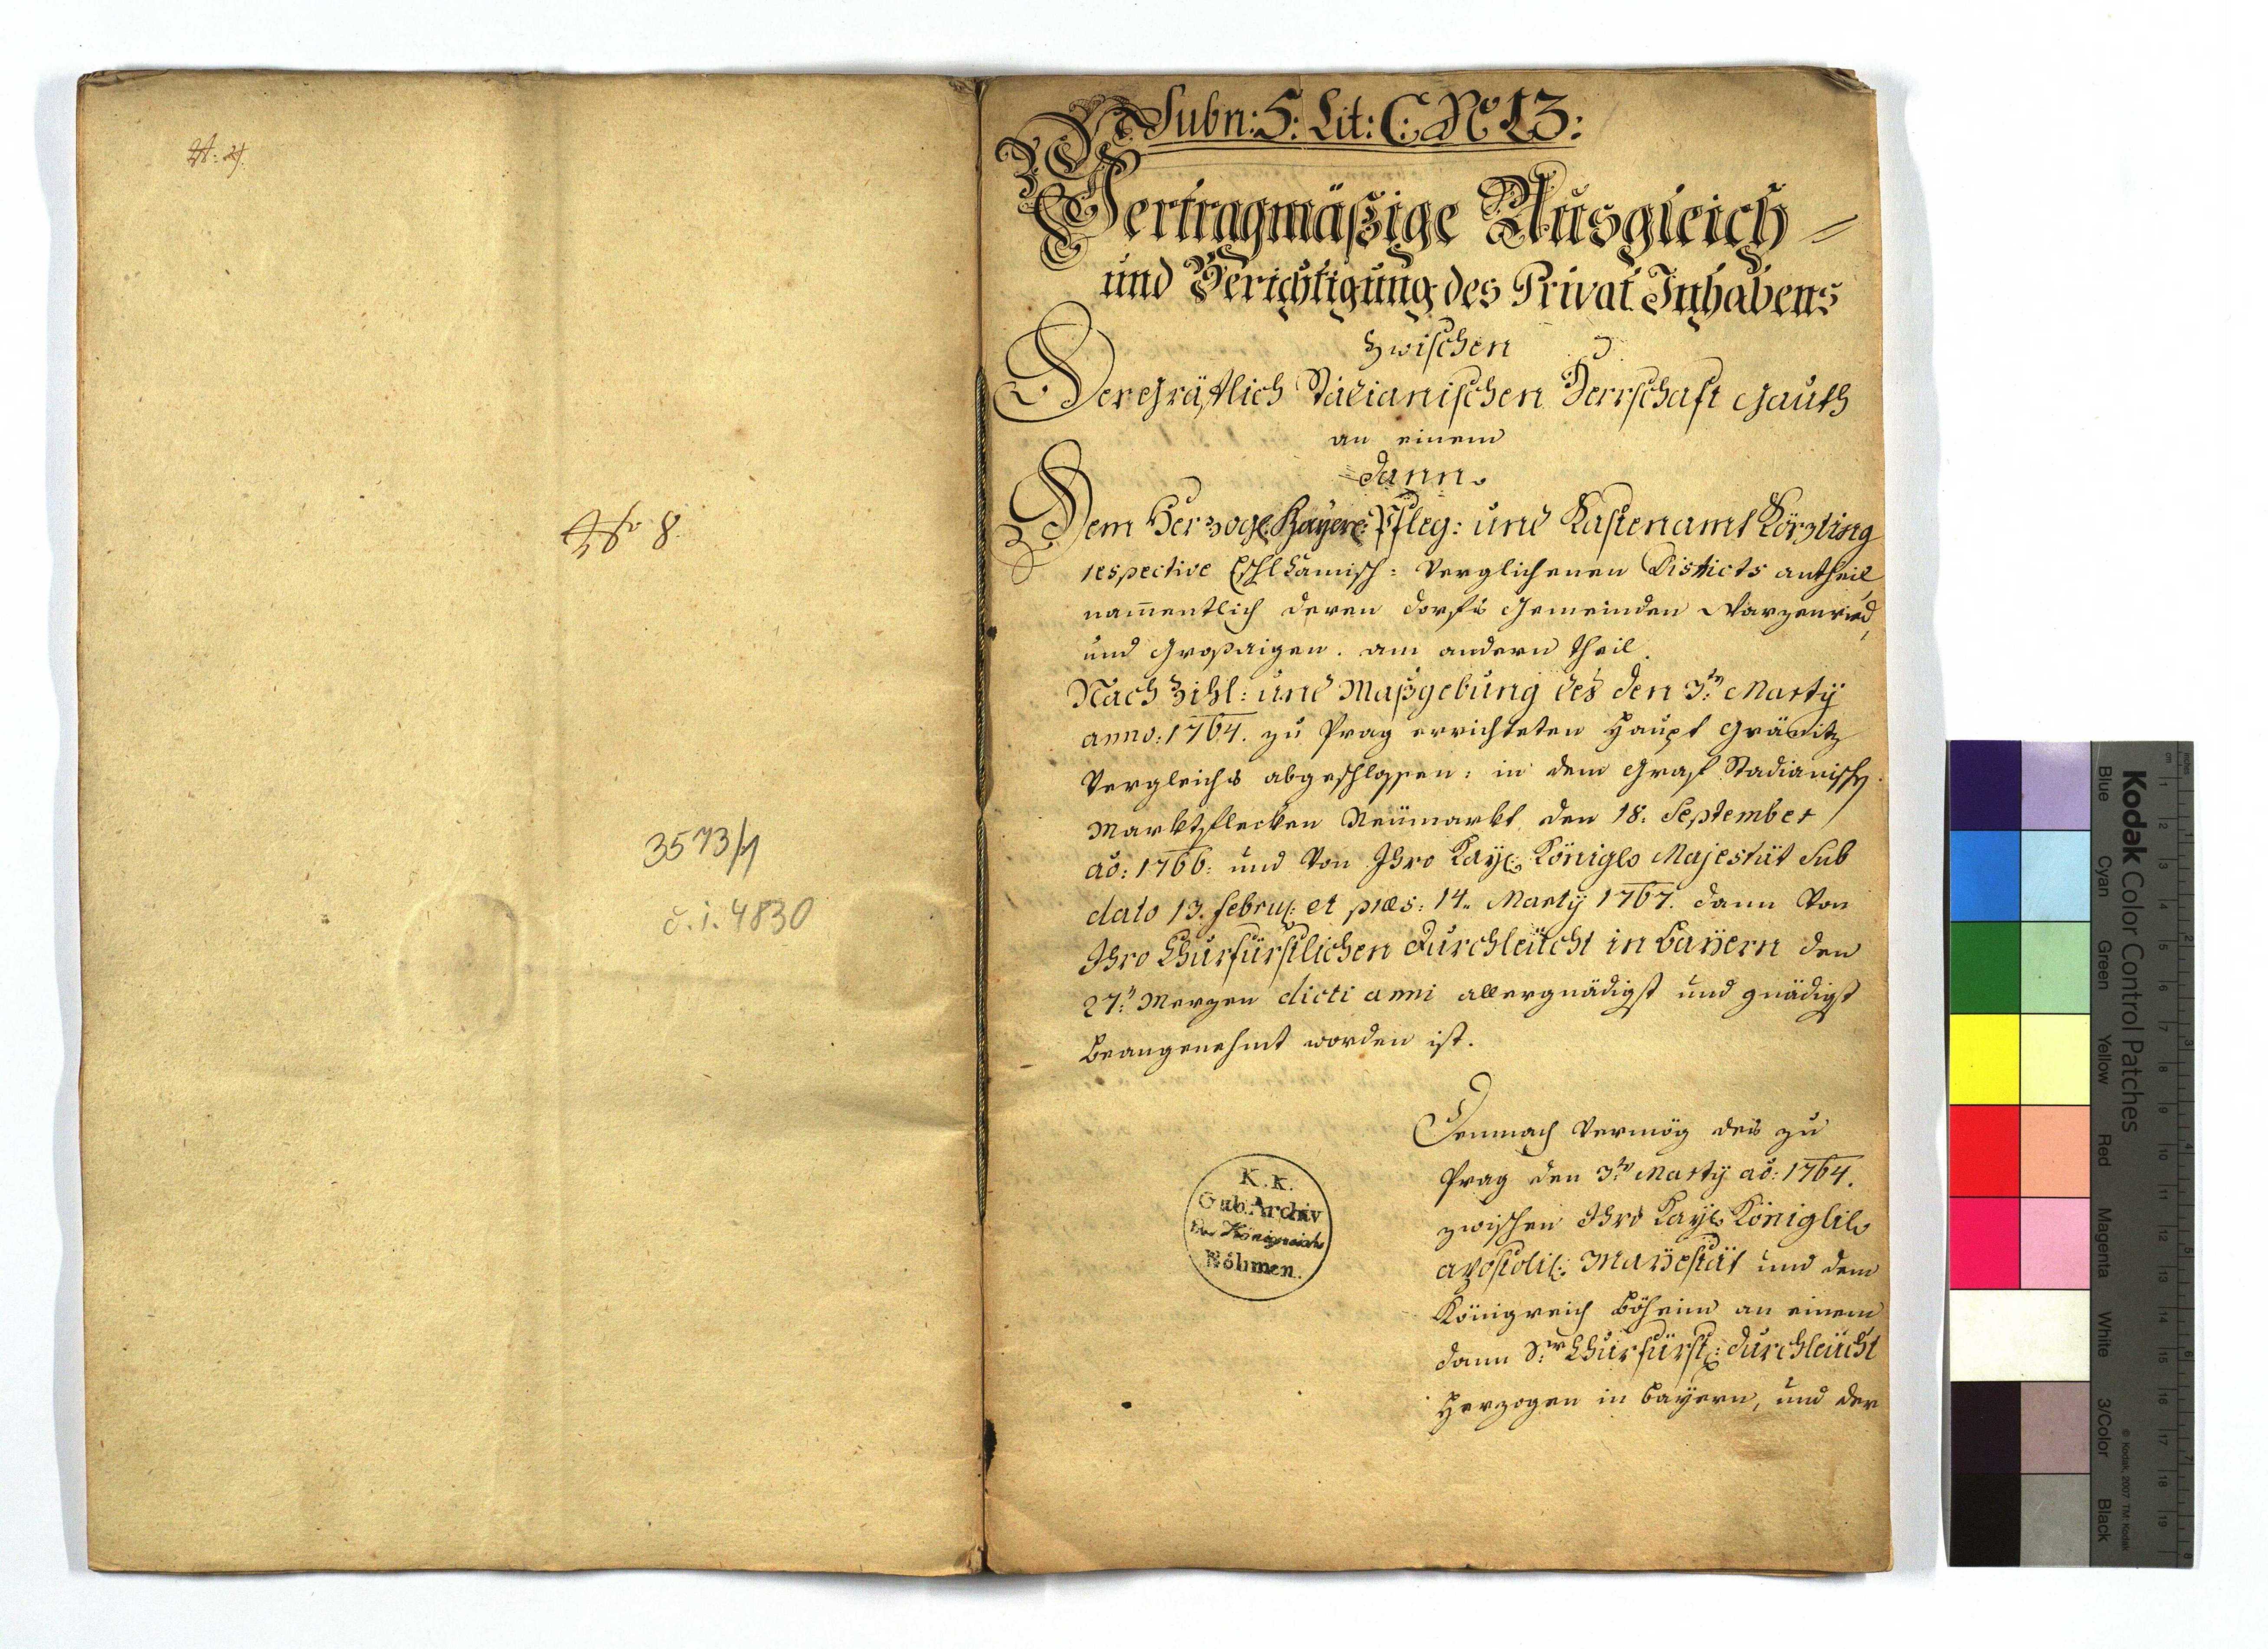 N: 8.
3573/1
č. i. 4830
Subn: 5: Lit: C: No 13:
Vertragmäßige Ausgleich=
und Berichtigung des Privat Inhabens
zwischen
Der Gräfflich Stadianischen Herrschaft Gauth
an einem
dann.
Dem Herzogl. Bayer: Pfleg: und Kastenamt Közting
respective Eschlkamisch: Verglichenen Districts antheil
nam̄entlich deren dorfs Gemeinden Warzenried,
und Großaigen. am andern theil.
Nach Zihl: und Maßgebung des den 3ten Marty
anno: 1764. zu Prag errichteten Haupt Gränitz
Vergleichs abgeschlossen: in dem Graf Stadianisch
Marktflecken Neümarkt den 18: September
ao: 1766: und von Ihro Kayl. Königle Majestät Sub
dato 13. febru: et præs: 14. Marty 1767. dann von
Ihro Churfürstlichen Durchleücht in Bayern den
27n Merzen dicti anni allergnädigst und gnädigst
beangenehmt worden ist.
Demnach vermög des zu
Prag den 3ten Marty ao: 1764.
zwischen Ihro Kayl. Königlile
apostolil: Mayestät und dem
Königreich Böheim an einem
dann Sr Churfürstl: Durchleücht
Herzogen in Bayern, und der
K. K.
Gub. Archiv
des Königreichs
Böhmen.
Kodak Color Control Patches
Blue Cyan Green Yellow Red Magenta White 3/Color Black
© Kodak, 2007 TM: Kodak